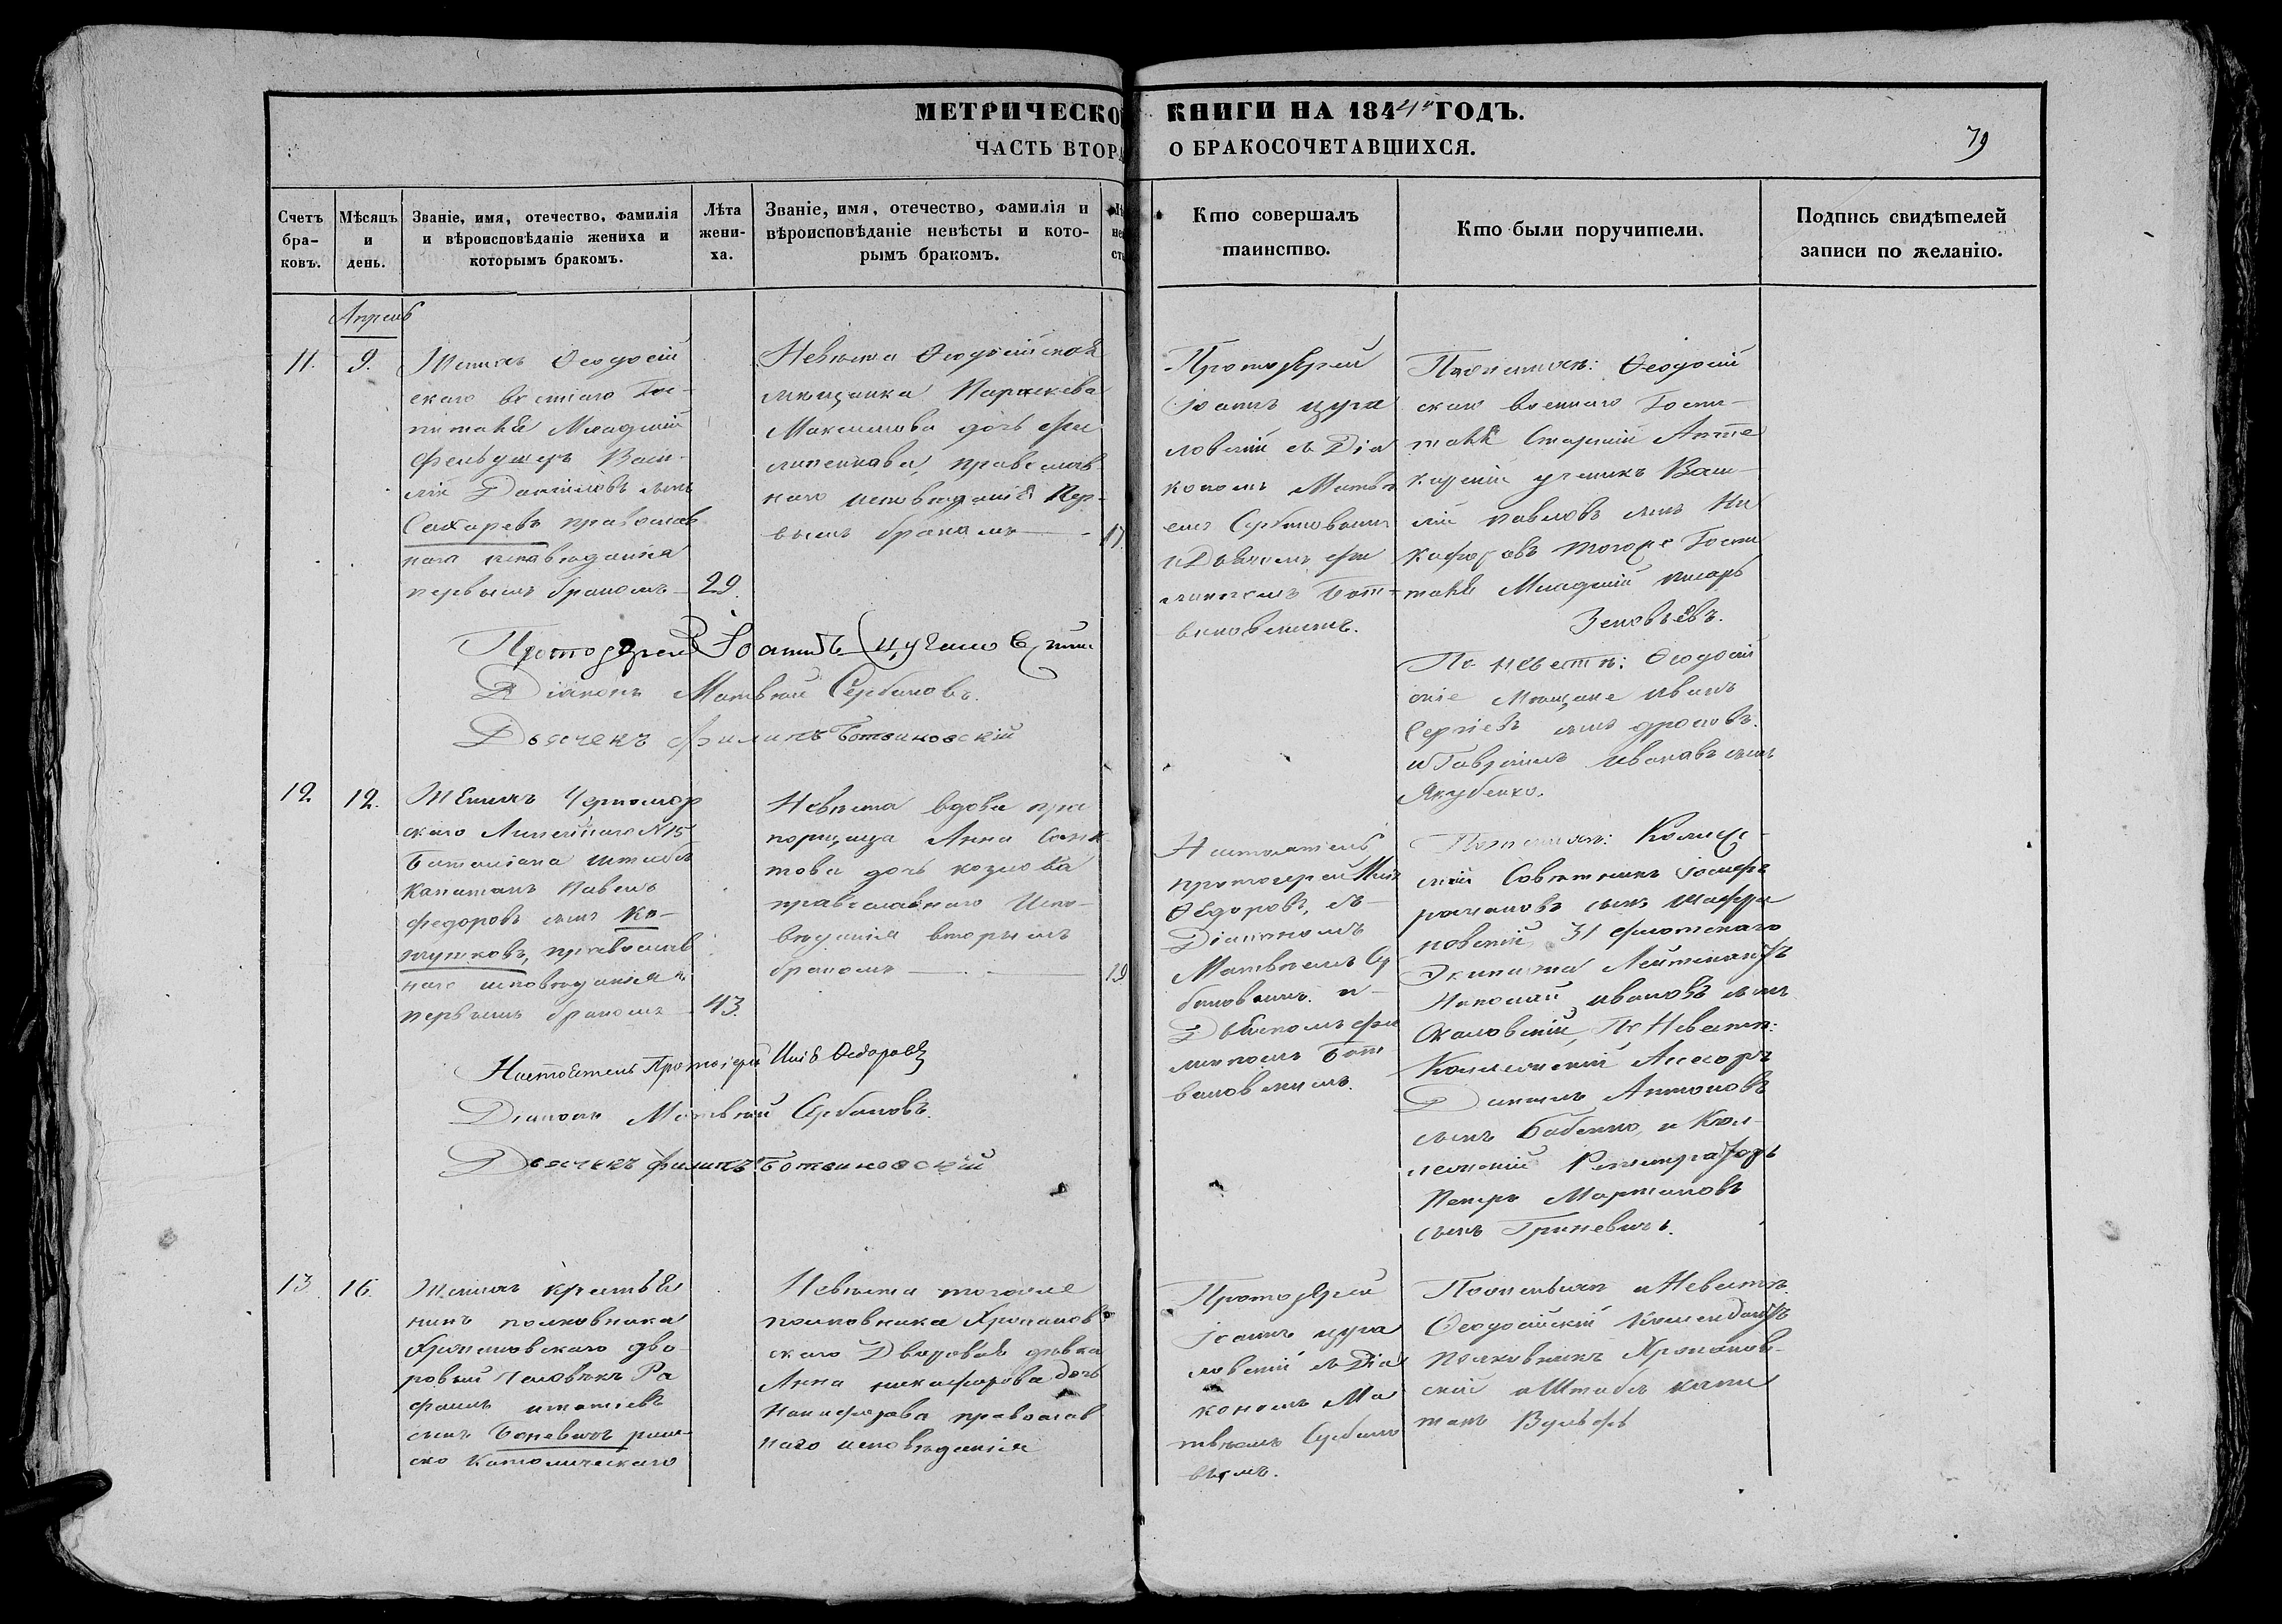 МЕТРИЧЕСКО КНИГИ НА 1844 ГОДЪ.
ЧАСТЬ ВТОРА О БРАКОСОЧЕТАВШИХСЯ.
79
Счетъ бра- ковъ.
Мѣсяцъ и день.
Званіе, имя, отечество, фамилія
и вѣроисповѣданіе жениха и
которымъ бракомъ.
Лѣта жени- ха.
Званіе, имя, отечество, фамилія и
вѣроисповѣданіе невѣсты и кото-
рымъ бракомъ.
Кто совершалъ
таинство.
Кто были поручители.
Подпись свидѣтелей
записи по желанію.
Апрель
11. 9.
Женихъ Ѳеодосій
скаго военнаго Гос-
питаля Младшій
Фельдшеръ Васи-
лій Даниловъ сынъ
Сахаревъ православ
наго исповѣданія
первымъ бракомъ 29.
Невѣста Ѳеодосійская
мещанка Параскева
Максимова дочь Фи
липенкова православ
наго исповѣданія Пер-
вымъ бракомъ 17.
Протоіерей
Іоаннъ Цуга
ловскій съ Діа
кономъ Матвѣ
емъ Сербиновымъ
и Дьячкомъ Фи
липомъ Бот-
виновскимъ.
По женихѣ: Ѳеодосій
скаго военнаго Госпи-
таля Старшій Апте
карскій ученикъ Васи-
лій Павловъ сынъ Ни
кифоровъ тогоже Госпи
таля Младшій писарь
Зеновьевъ.
По невестѣ: Ѳеодосій
скіе Мещане Иванъ
Сергіевъ сынъ
и Гавріилъ Ивановъ сынъ
Якубенко.
Протоіерей Іоаннъ Цугаловскій
Діаконъ Матвѣй Сербиновъ.
Дьячекъ Филипъ Ботвиновскій
12 12.
Женихъ Черномор
скаго Линейнаго N 15
Баталіона Штабсъ
Капитанъ Павелъ
Федоровъ сынъ Ко-
шутковъ, православ
наго исповѣданія
первымъ бракомъ 43.
Невѣста вдова пра
порщица Анна
това дочь Козлова
православнаго Испо-
вѣданія вторымъ
бракомъ 19
Настоятель
протоіерей Илія
Ѳедоровъ, съ
Діакономъ
Матвѣемъ Се
биновымъ и
Дьячкомъ Фи
липомъ Бот
виновскимъ.
По женихѣ: Коллеж-
скій Совѣтникъ Іосифъ
сынъ Шафра
новскій, 31 флотскаго
Экипажа Лейтенантъ
Николай Ивановъ сынъ
По Невестѣ:
Коллежскій Ассесоръ
Данилъ Антоновъ
сынъ Бабенко, и Кол-
лежскій Регистраторъ
Петръ Мартиновъ
сынъ Гриневичъ.
Настоятель Протоіерей Илія Ѳедоровъ
Діаконъ Матвѣй Сербиновъ.
Дьячекъ Филипъ Ботвиновскій
13. 16.
Женихъ крестья
нинъ полковника
Хропановскаго дво
ровый человѣкъ Ра
фаилъ Игнатіевъ
сынъ Боневичъ рим-
ско Католическаго
Невѣста тогоже
полковника Хропанов
скаго Дворовая дѣвка
Анна Никифорова дочь
Никифорова православ
наго исповѣданія
Протоіерей
Іоаннъ Цуга
ловскій съ Діа
кономъ Ма
твѣемъ Сербино
вымъ.
По женихѣ и Невестѣ
Ѳеодосійскій Комендантъ
Полковникъ Хропанов-
скій и Штабсъ капи
танъ Вульфъ